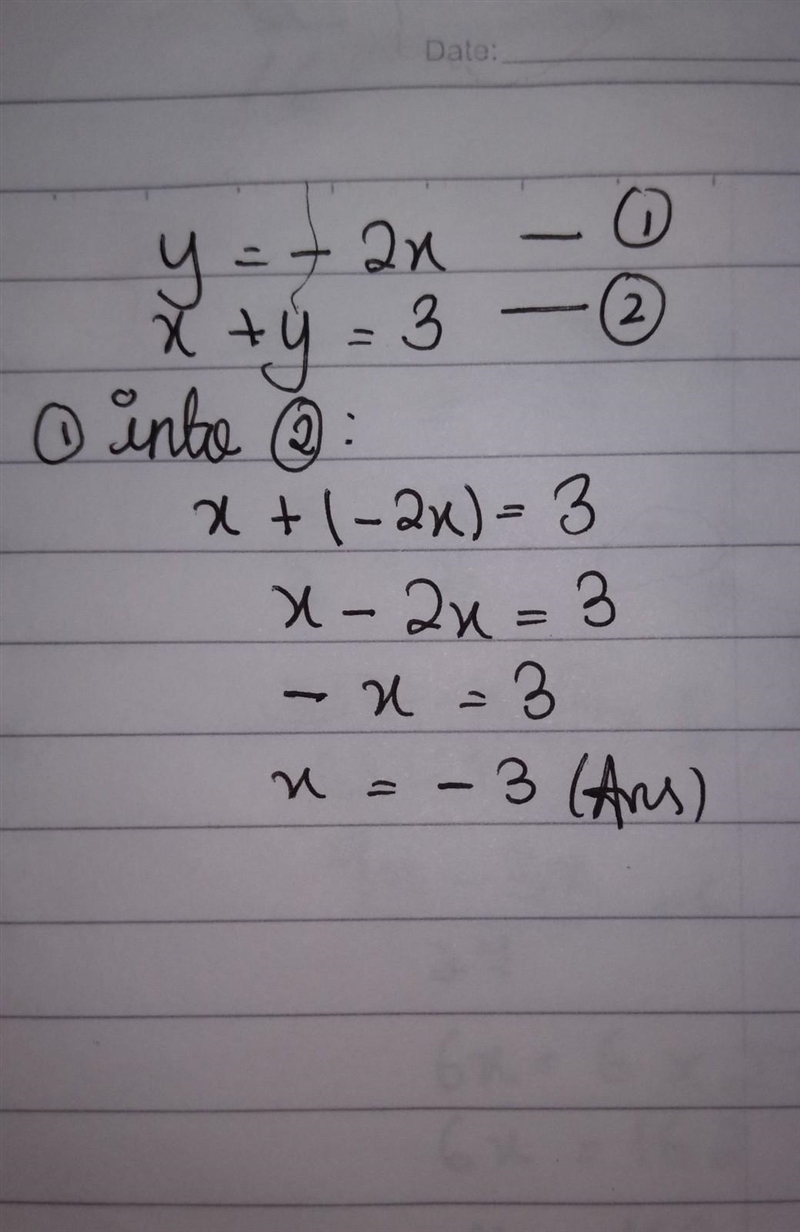 Date:
y = - 2x — ①
x + y = 3 — ②
① into ② :
x + (- 2x) = 3
x - 2x = 3
- x = 3
x = - 3 (Ans)
6x + 6 x
6x =